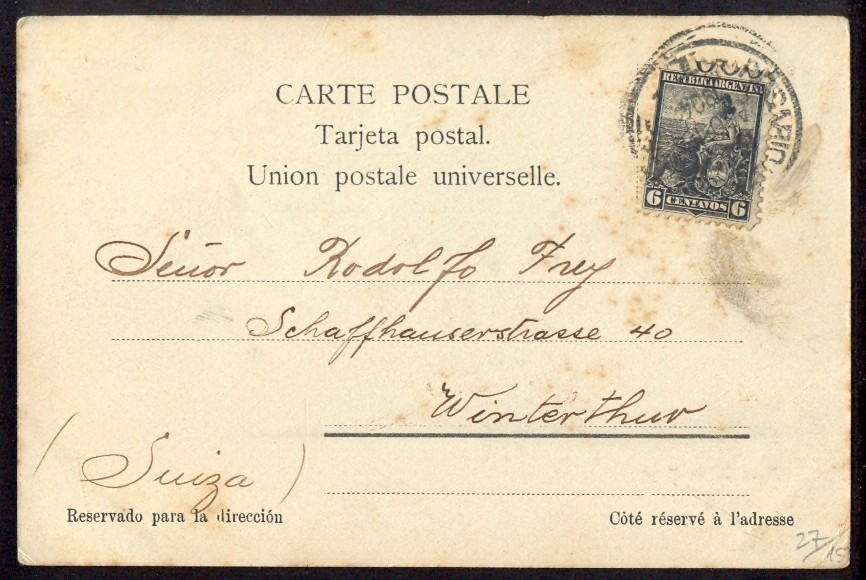 CARTE POSTALE
Tarjeta postal.
Union postale universelle.
REPUBLICA ARGENTINA
6 CENTAVOS 6
Señor Rodolfo Frey
Schaffhauserstrasse 40
Winterthur
(Suiza)
Reservado para la dirección
Côté réservé à l'adresse
27/15